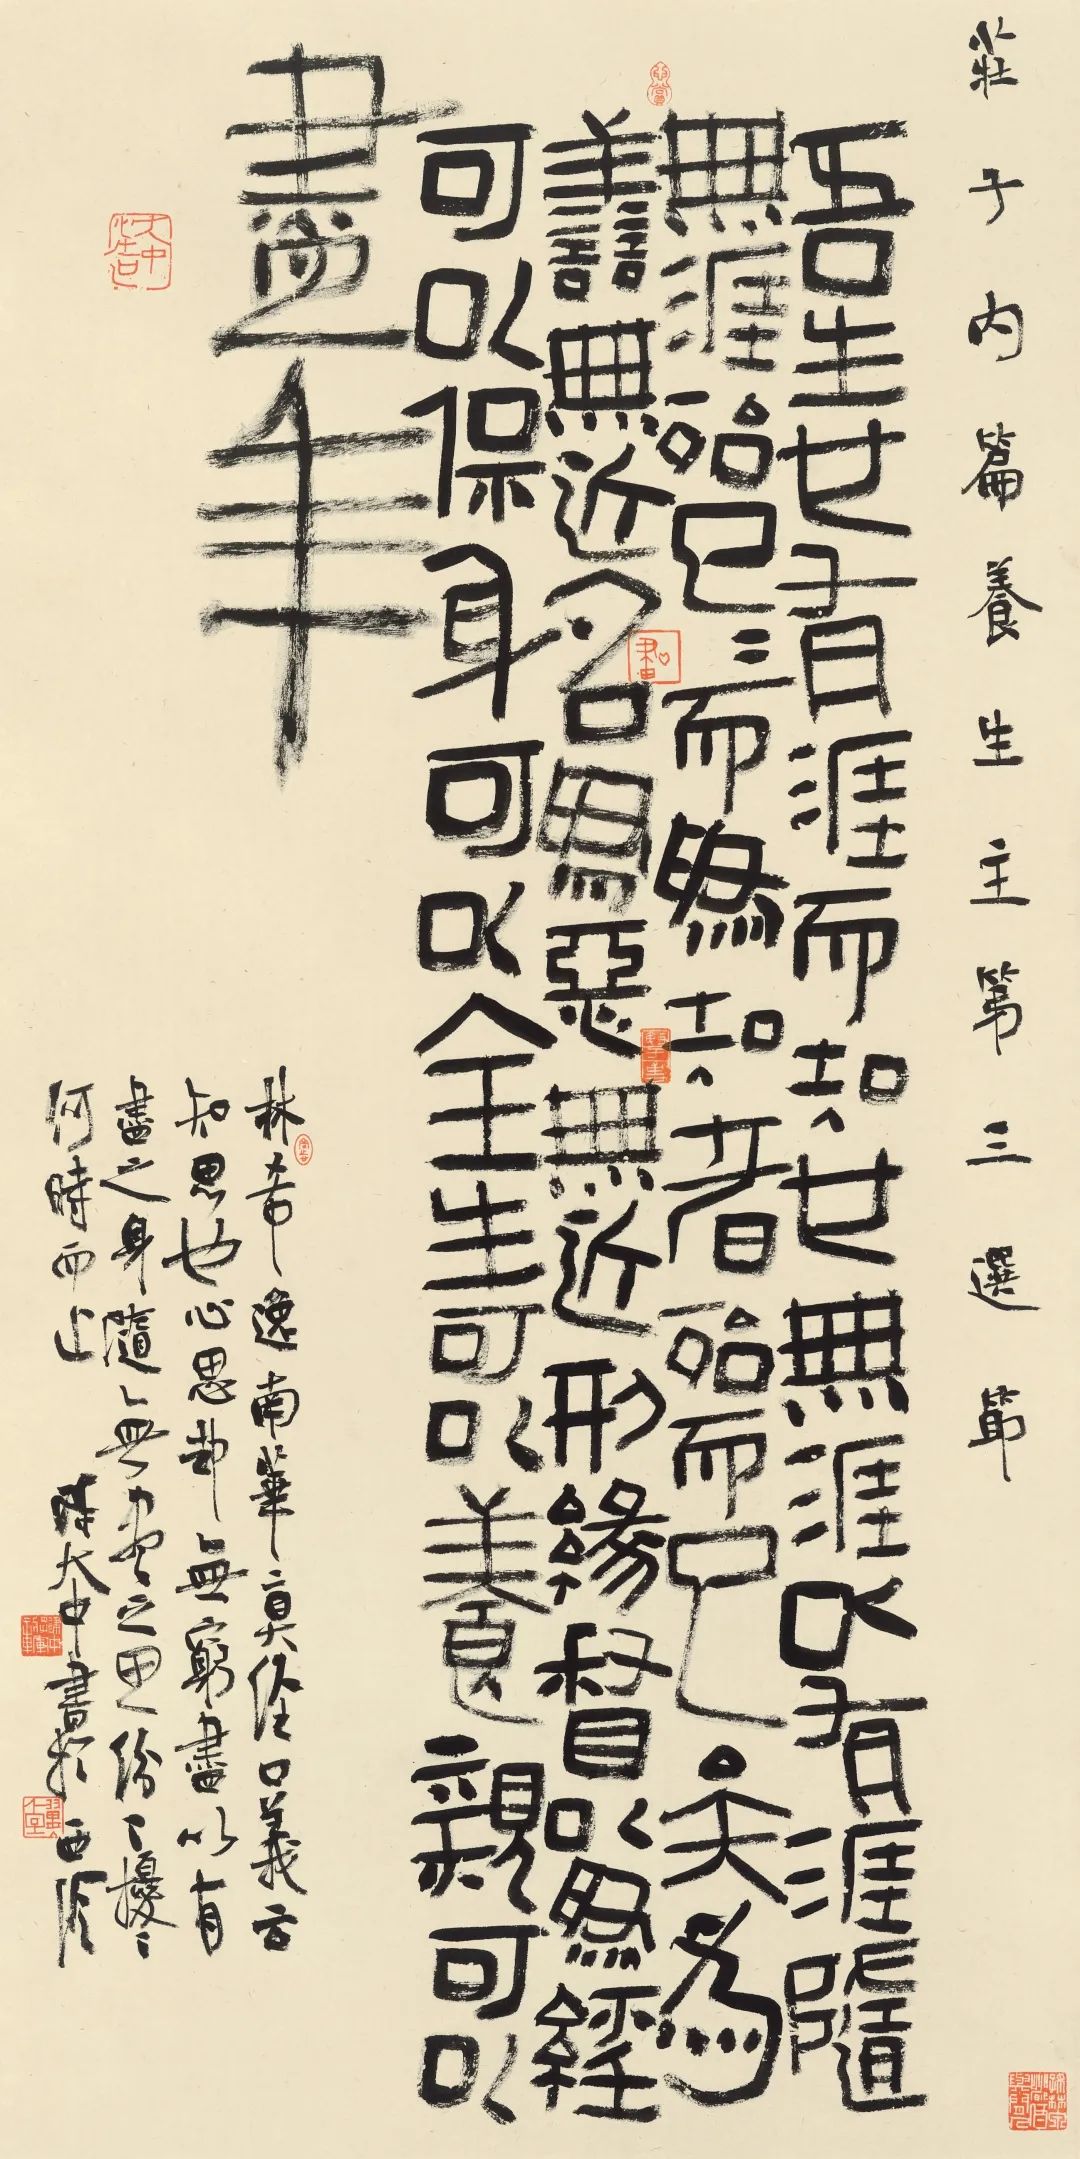 莊子內篇養生主第三選節
吾生也有涯而知也無涯以有涯隨
無涯殆已〻而為知者殆而已矣為
譱無近名為惡無近形緣督以為經
可以保身可以全生可以養親可以
盡年
林希逸南華真經口義云
知思也心思却無窮盡以有
盡之身隨無盡之思紛〻擾〻
何時而止 陳大中書於西泠